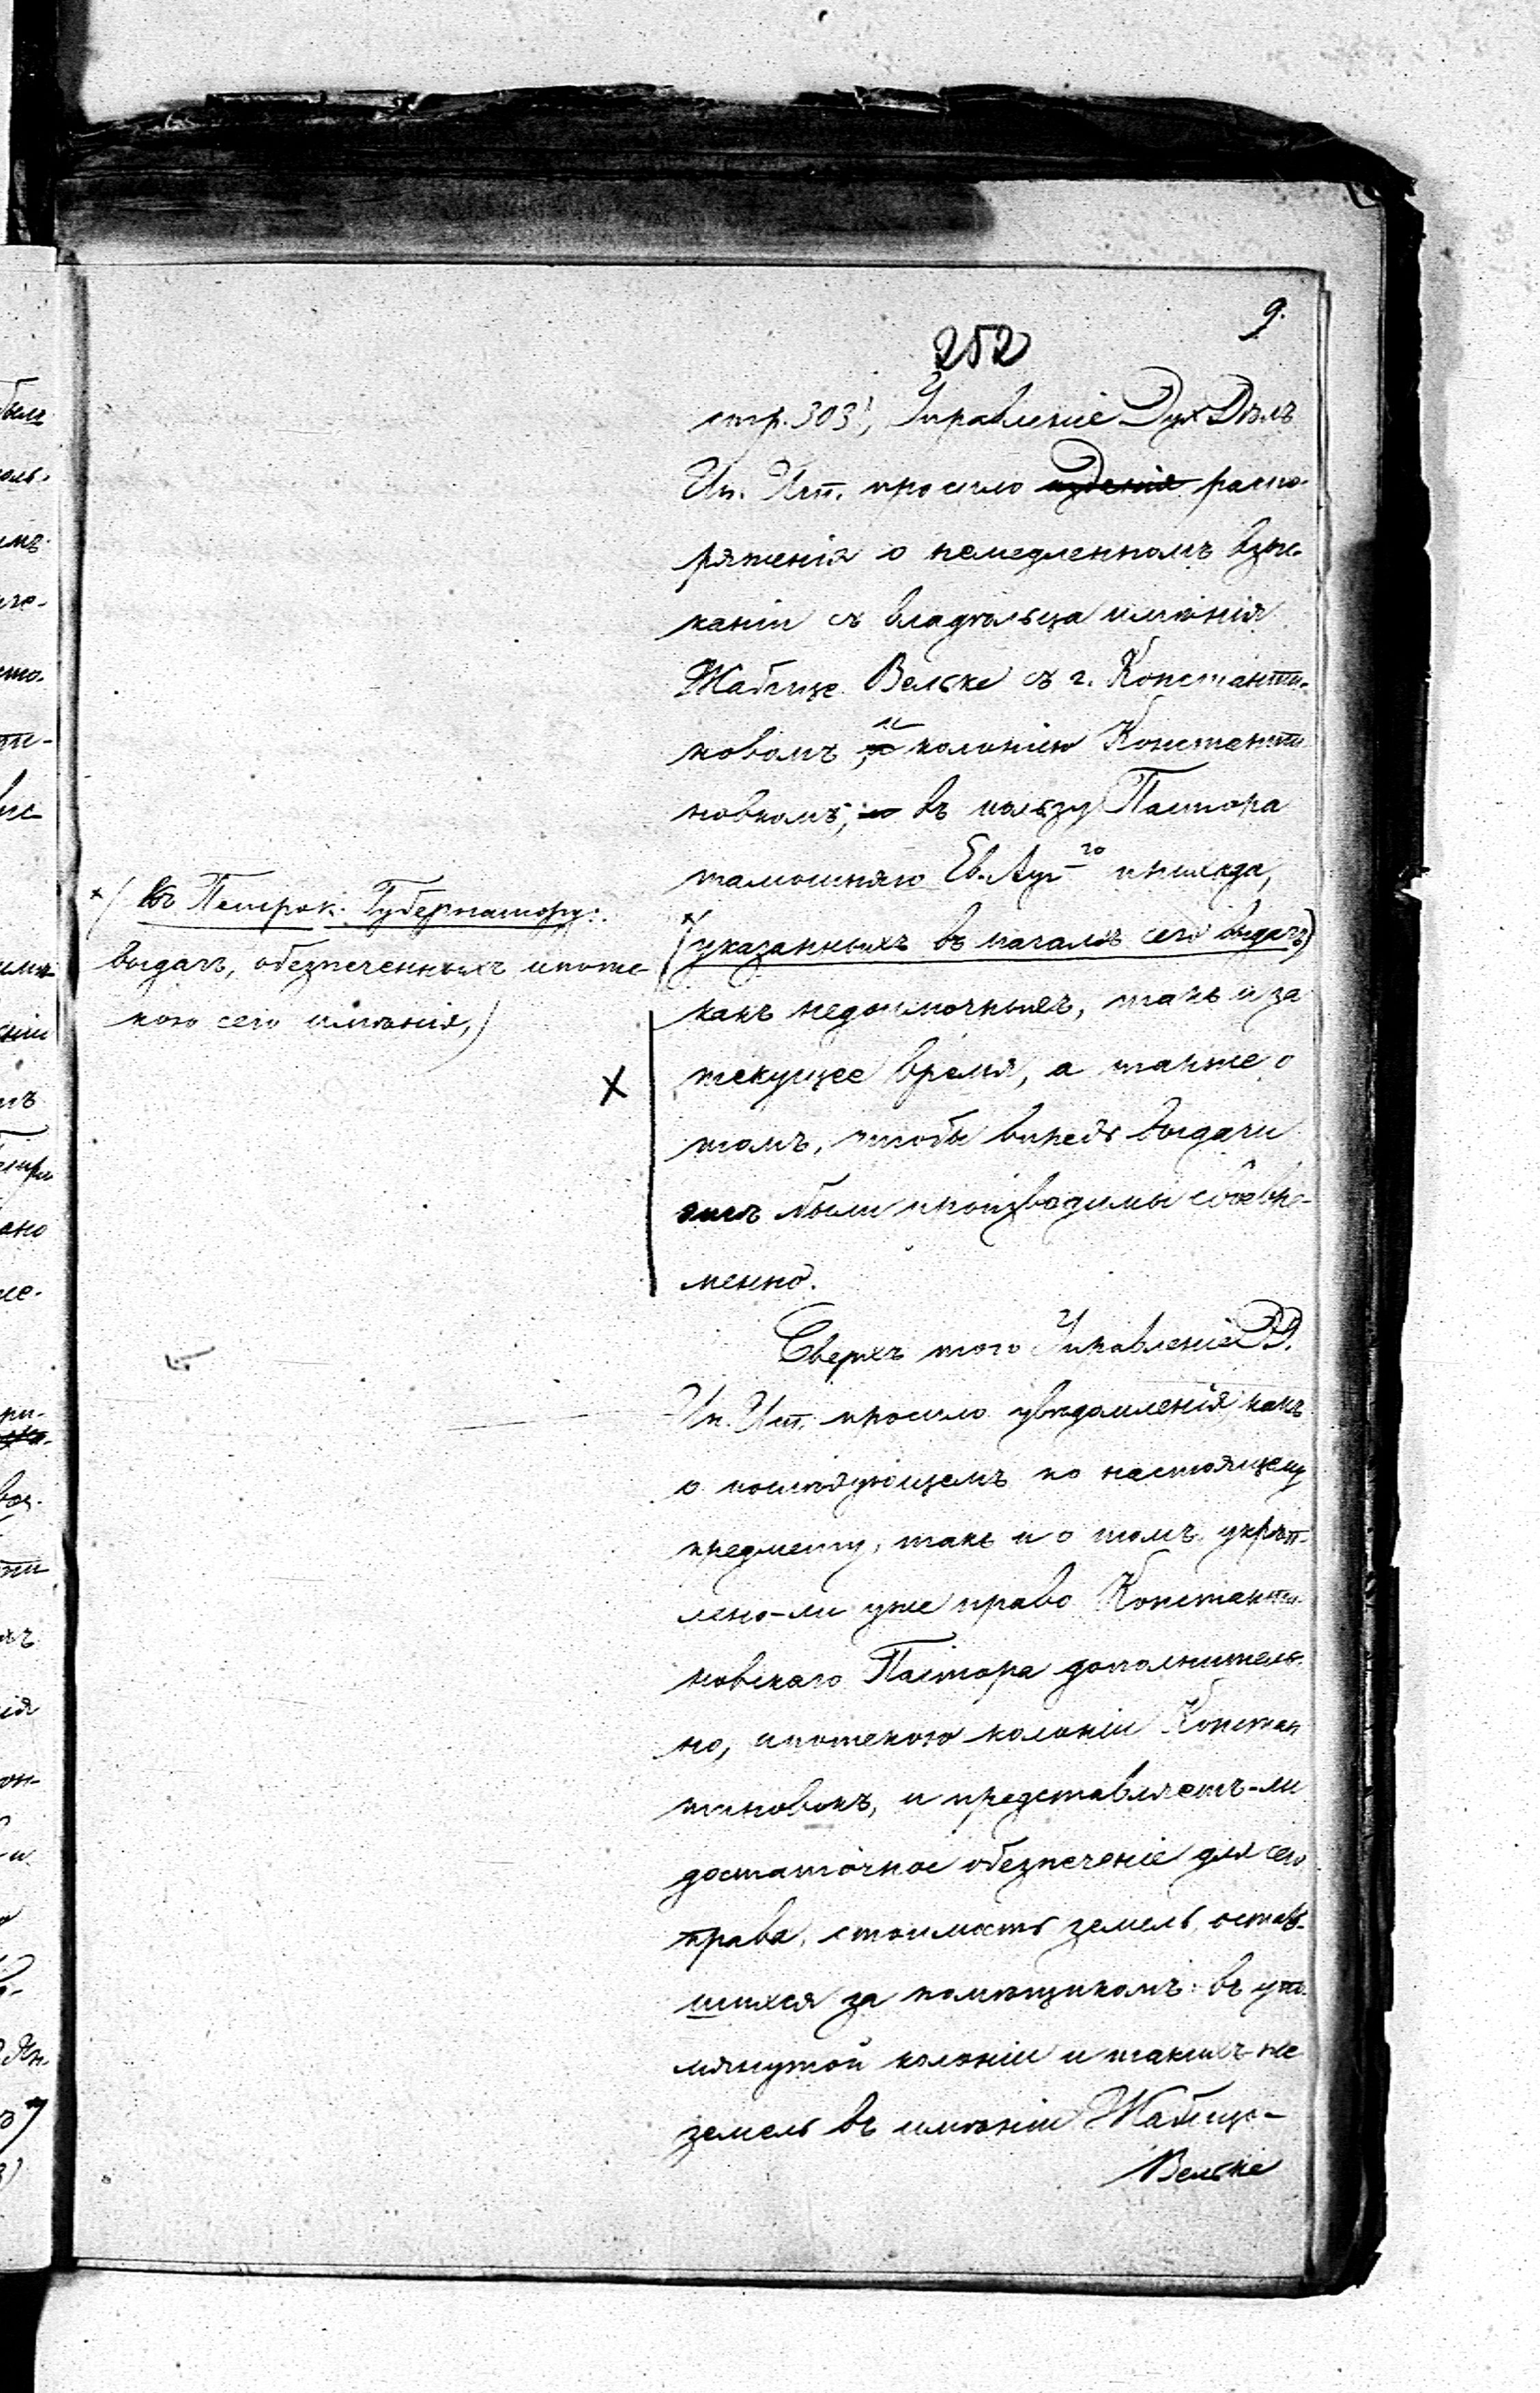 9.
252
стр. 303), Управленіе Дух. Дѣлъ
Ин. Исп. просило распо-
ряженія о немедленномъ взыс-
каніи съ владѣльца имѣнія
Жабице Вельке съ г. Константи-
новомъ, и колоніею Константи-
новкомъ, въ пользу Пастора
тамошняго Ев. Ауг-го прихода,
х
(указанныхъ въ началѣ сего выдачъ)
какъ недоимочныхъ, такъ и за
текущее время, а также о
томъ, чтобы впредь выдачи
сіи были производимы своевре-
менно.
Сверхъ того Управленіе Д.Д.
Ин. Исп. просило увѣдомленія, какъ
о послѣдующемъ по настоящему
предмету, такъ и о томъ, укрѣп-
лено-ли уже право Константи-
новскаго Пастора дополнитель-
но, ипотекою колоніи Констан
тиновокъ, и представляетъ-ли
достаточное обезпеченіе для сего
права, стоимость земель, остав-
шихся за помѣщикомъ въ упо-
мянутой колоніи и такихъ-же
земель въ имѣніи Жабице-
Вельке
х/ Къ Петрок. Губернатору:
выдачъ, обезпеченныхъ ипоте-
кою сего имѣнія,)
Х